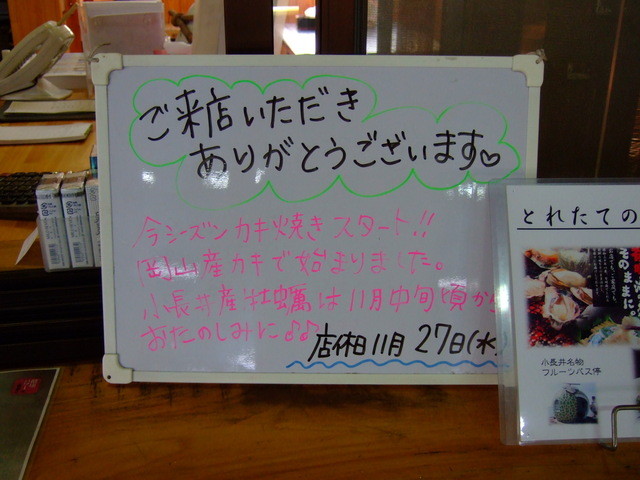 ご来店いただき
ありがとうございます♡
今シーズンカキ焼きスタート!!
岡山産カキで始まりました。
小長井産牡蠣は11月中旬頃から
おたのしみに♪♪
店休日11月27日(水)
とれたての
そのままに。
小長井名物
フルーツバス停